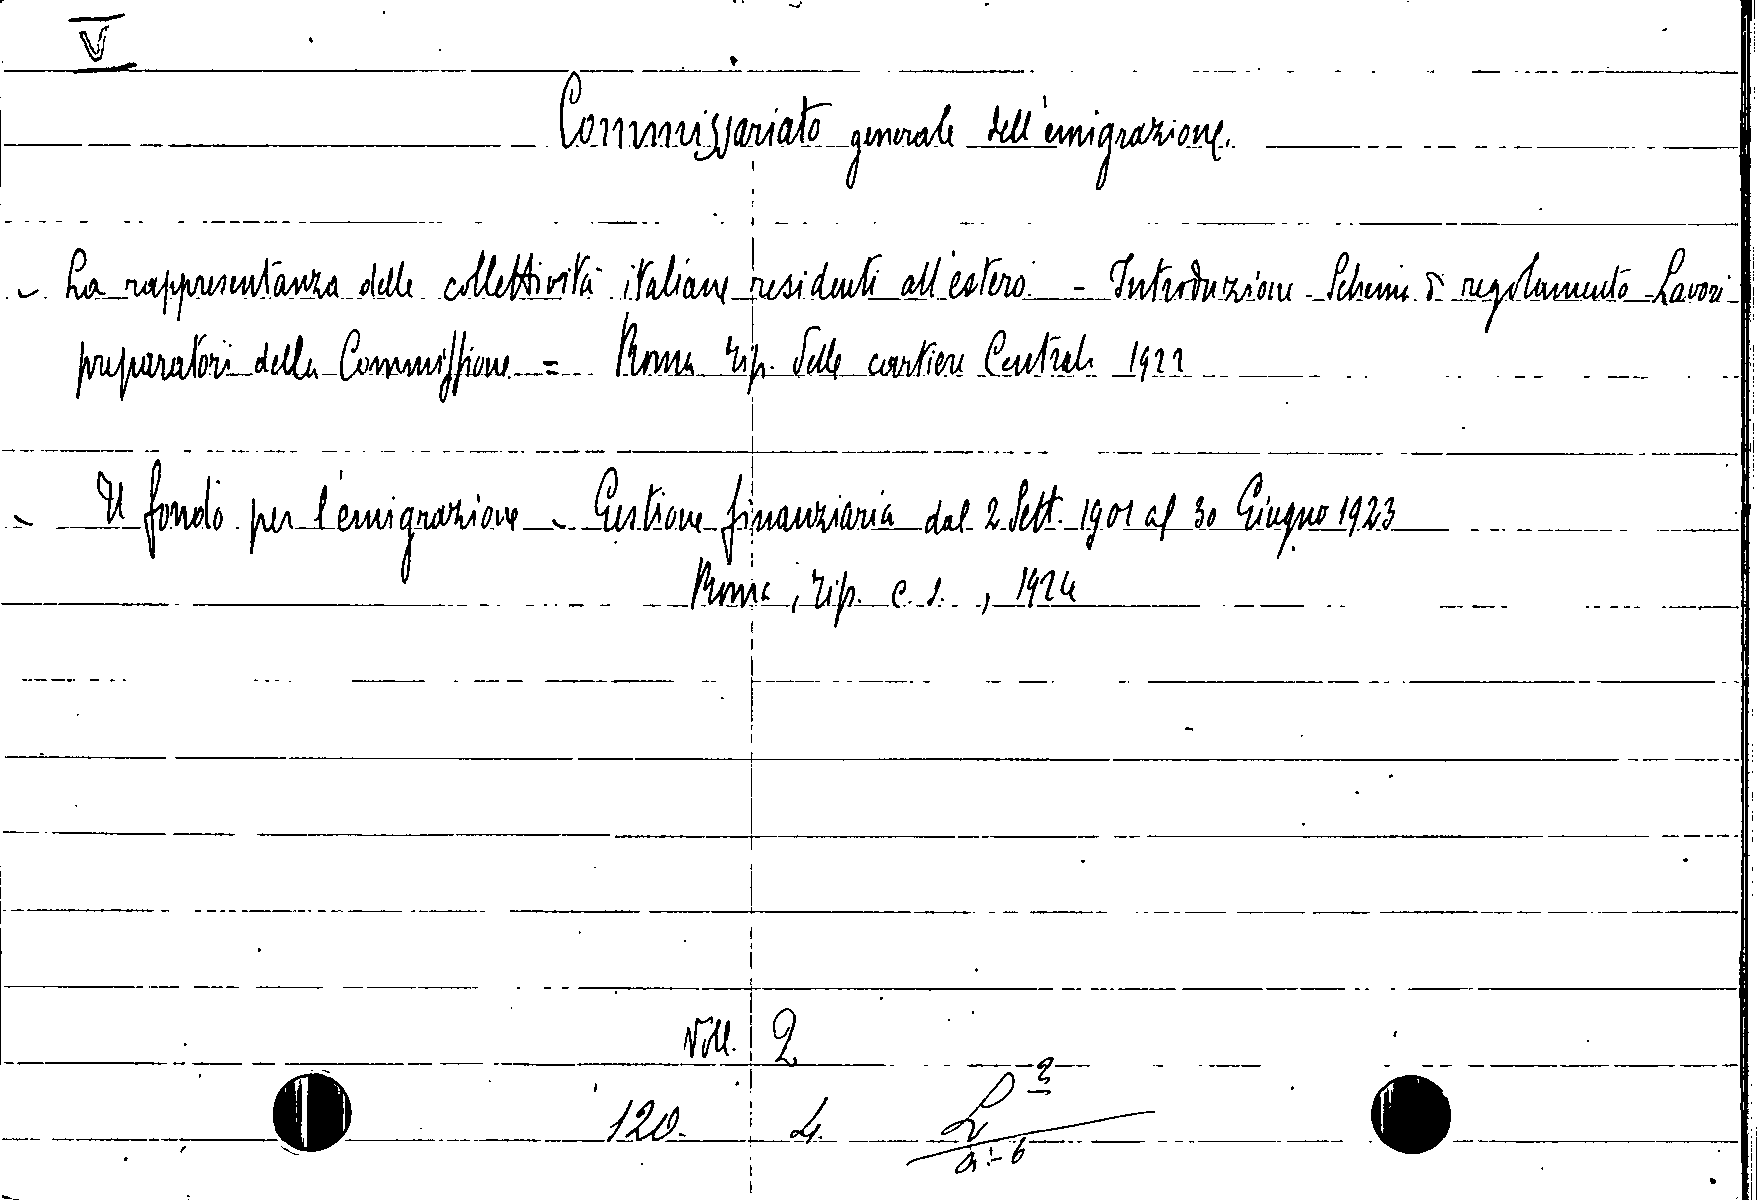 V
Commissariato generale dell'emigrazione.
- La rappresentanza delle collettività italiane residenti all'estero - Introduzione - Schema di regolamento - Lavori
preparatori della Commissione = Roma Tip. delle cartiere Centrali 1922
- Il fondo per l'emigrazione - Gestione finanziaria dal 2 Sett. 1901 al 30 Giugno 1923
Roma, Tip. c. s., 1924
Voll. 2
120. 4. L 3
a-b